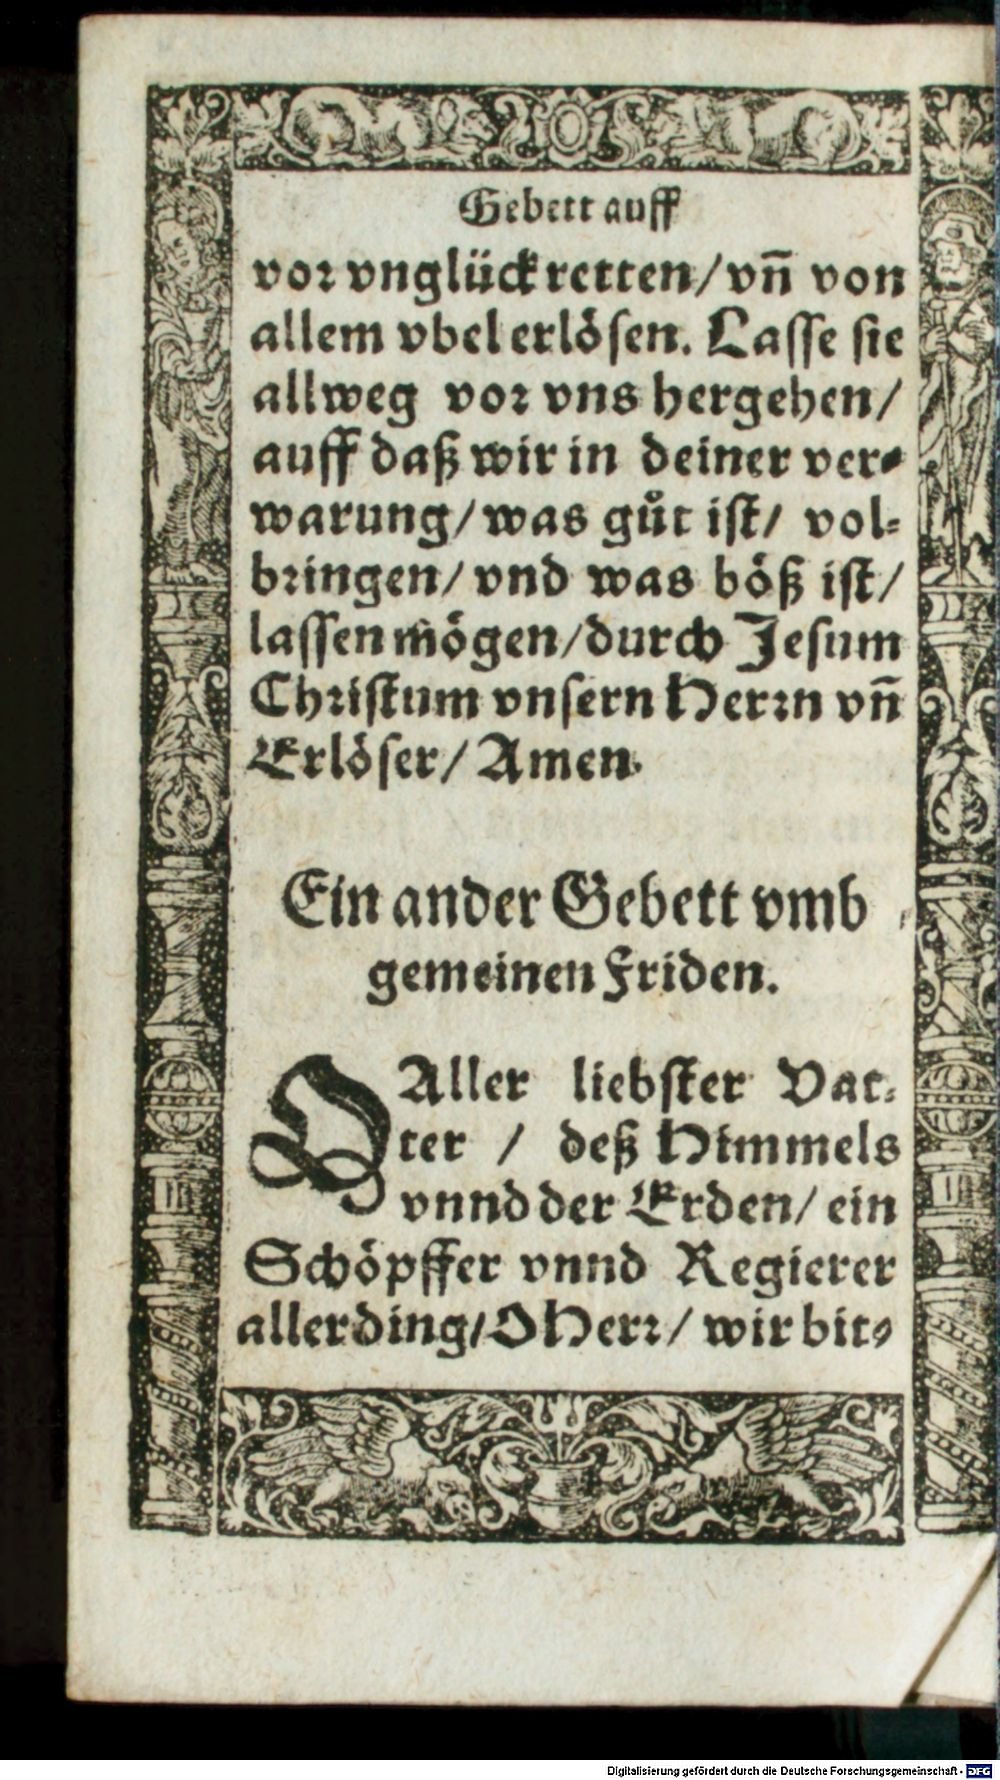 Gebett auff
vor vnglück retten/ vñ von
allem vbel erlösen. Lasse sie
allweg vor vns hergehen/
auff daß wir in deiner ver-
warung/ was gůt ist/ vol-
bringen/ vnd was böß ist/
lassen mögen/ durch Jesum
Christum vnsern Herrn vñ
Erlöser/ Amen.
Ein ander Gebett vmb
gemeinen Friden.
O Aller liebster Vat-
ter / deß Himmels
vnnd der Erden/ ein
Schöpffer vnnd Regierer
allerding/ O Herr/ wir bit-
Digitalisierung gefördert durch die Deutsche Forschungsgemeinschaft - DFG